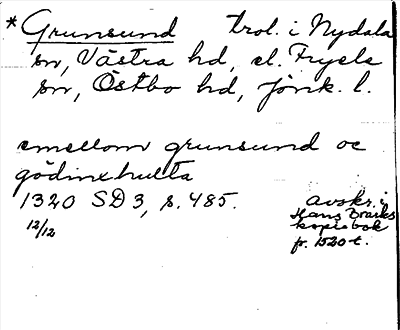 *Grunsund trol. i Nydala
sn, Västra hd, el. Fryele
sn, Östbo hd, Jönk. l.
emellom grunsund oc
gödinxhulta
1320 SD 3, s. 485.
12/12
avskr. i
Hans Brasks
kopiebok
fr. 1520-t.